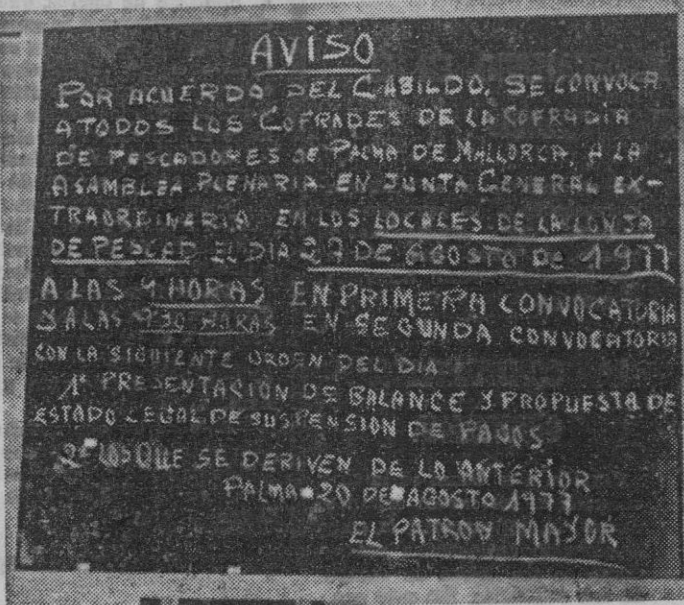 AVISO
POR ACUERDO DEL CABILDO, SE CONVOCA
A TODOS LOS COFRADES DE LA COFRADIA
DE PESCADORES DE PALMA DE MALLORCA, A LA
ASAMBLEA PLENARIA EN JUNTA GENERAL EX-
TRAORDINARIA EN LOS LOCALES DE LA LONJA
DE PESCAD EL DIA 27 DE AGOSTO DE 1977
A LAS 9 HORAS EN PRIMERA CONVOCATORIA
Y A LAS 9'30 HORAS EN SEGUNDA CONVOCATORIA
CON LA SIGUIENTE ORDEN DEL DIA
1º PRESENTACION DE BALANCE Y PROPUESTA DE
ESTADO LEGAL DE SUSPENSION DE PAGOS
2º LOS QUE SE DERIVEN DE LO ANTERIOR
PALMA 20 DE AGOSTO 1977
EL PATRON MAYOR